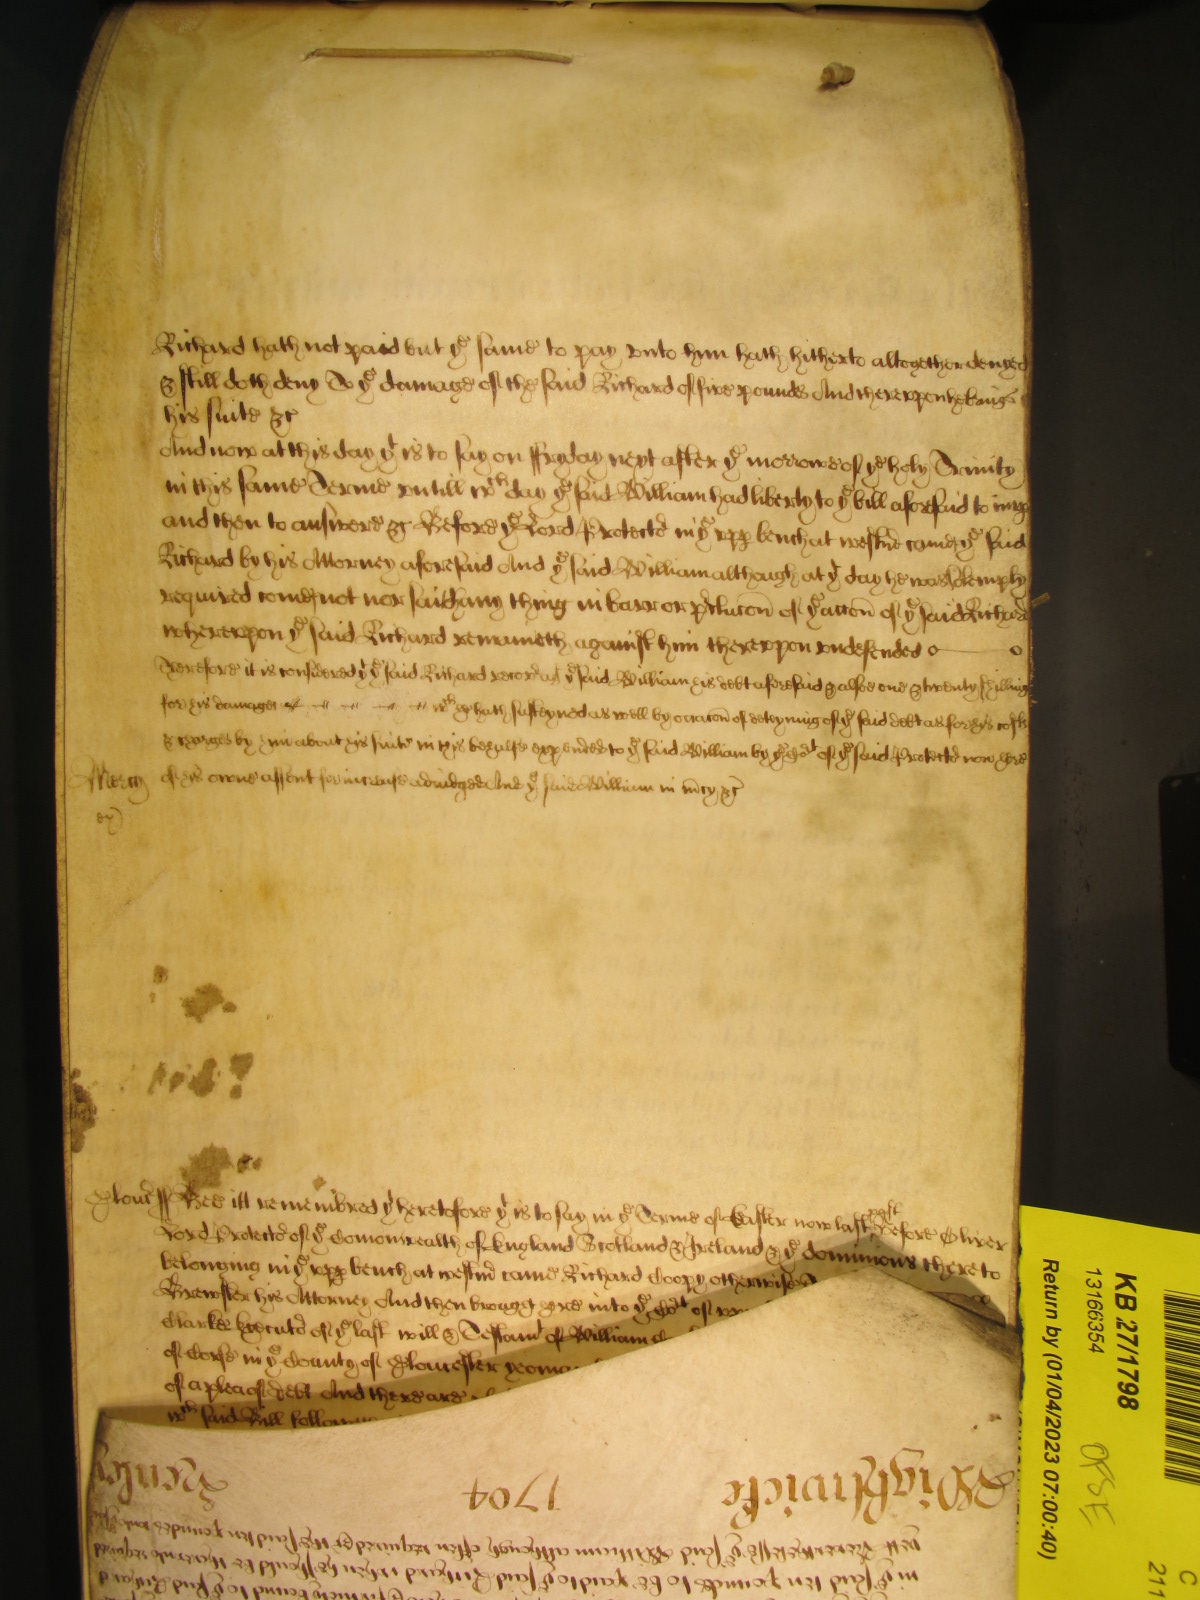 Richard hath not paid but ye same to pay unto him hath hitherto altogether denyed
& still doth deny To ye damage of the said Richard of five pounds And thereupon he brings
his suite &c
And now at this day yt is to say on ffryday next after ye morrowe of ye holy Trinity
in this same Terme untill wch day ye said William had liberty to ye bill aforesaid to imp
and then to answere &c Before ye Lord Protector in ye upp bench at westmr came ye said
Richard by his Attorney aforesaid And ye said William although at yt day he was solemply
required came not nor saith any thing in barr or preclucon of ye accon of ye said Richard
whereupon ye said Richard remaineth against him thereupon undefended
Therefore it is considered yt ye said Richard recover agt ye said William his debt aforesaid & alsoe one & twenty shillings
for his damages wch he hath susteyned as well by occacon of deteyning of ye said debt as for his costs
& charges by him about his suite in this behalfe expended to ye said William by ye Cort of ye said Protector now here
Mercy of his owne assent for increase adiudged And ye said William in mcy &c
Glouc ss Bee itt remembred yt heretofore yt is to say in ye Terme of Easter now last past before Oliver
Lord Protector of ye Comonwealth of England Scotland & Ireland & ye dominions thereto
belonging in ye upp bench at westmr came Richard Coopy otherwise
Brewster his Attorney And then brought here into ye Cort of
Clarke Executor of ye last will & Testamt of William
of Corse in ye County of Gloucester yeoman
of a plea of debt And there are
wch said Bill followes
Wightwicke 1704 Henley
in ye said ten pounds to be paid to ye said Richard when he should be thereunto required
yett neverthelesse ye said William although often required ye said ten pounds
KB 27/1798
13166354
Return by (01/04/2023 07:00:40)
C
211